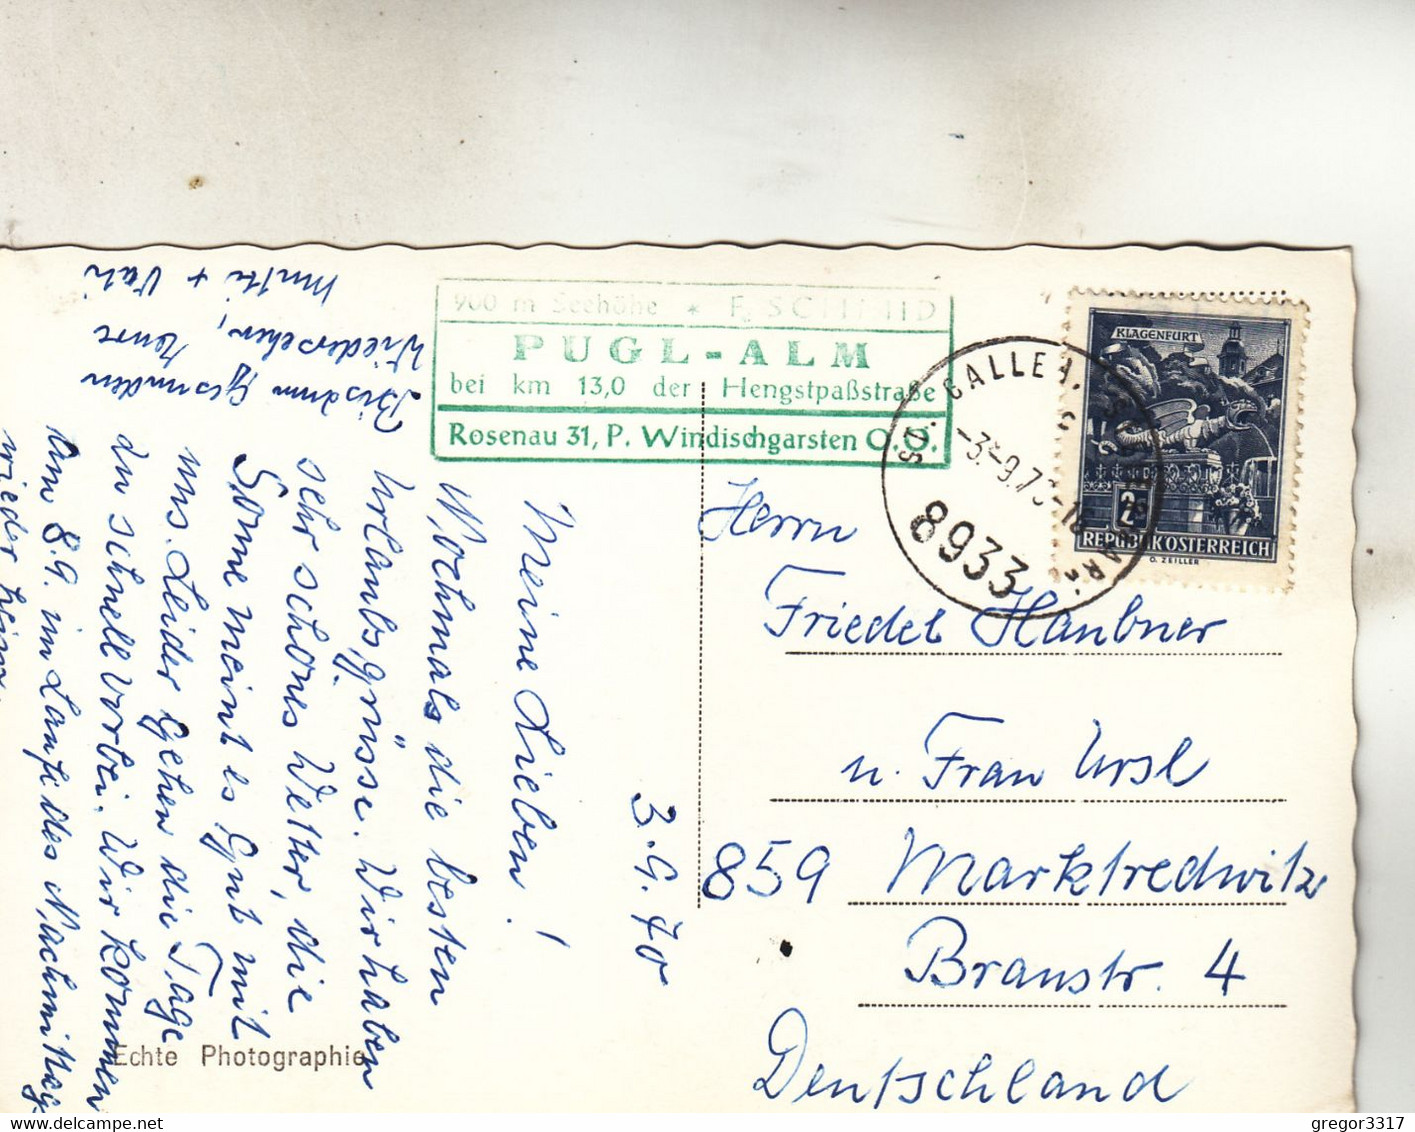 900 m Seehöhe * F. SCHMID
PUGL-ALM
bei km 13,0 der Hengstpaßstraße
Rosenau 31, P. Windischgarsten O.Ö.
KLAGENFURT
2
REPUBLIK ÖSTERREICH
O. ZEILLER
8933
3.9.70
Meine Lieben!
Nochmals die besten
Urlaubsgrüsse. Wir haben
sehr schönes Wetter, die
Sonne meint es Gut mit
uns. Leider gehen die Tage
zu schnell vorbei. Wir kommen
am 8.9. im Laufe des Nachmittag
wieder heim.
Bis dann gesundes
Wiedersehen, Eure
Mutti + Vati
Herrn
Friedel Haubner
u. Frau Ursl
859 Marktredwitz
Braustr. 4
Deutschland
Echte Photographie
gregor3317